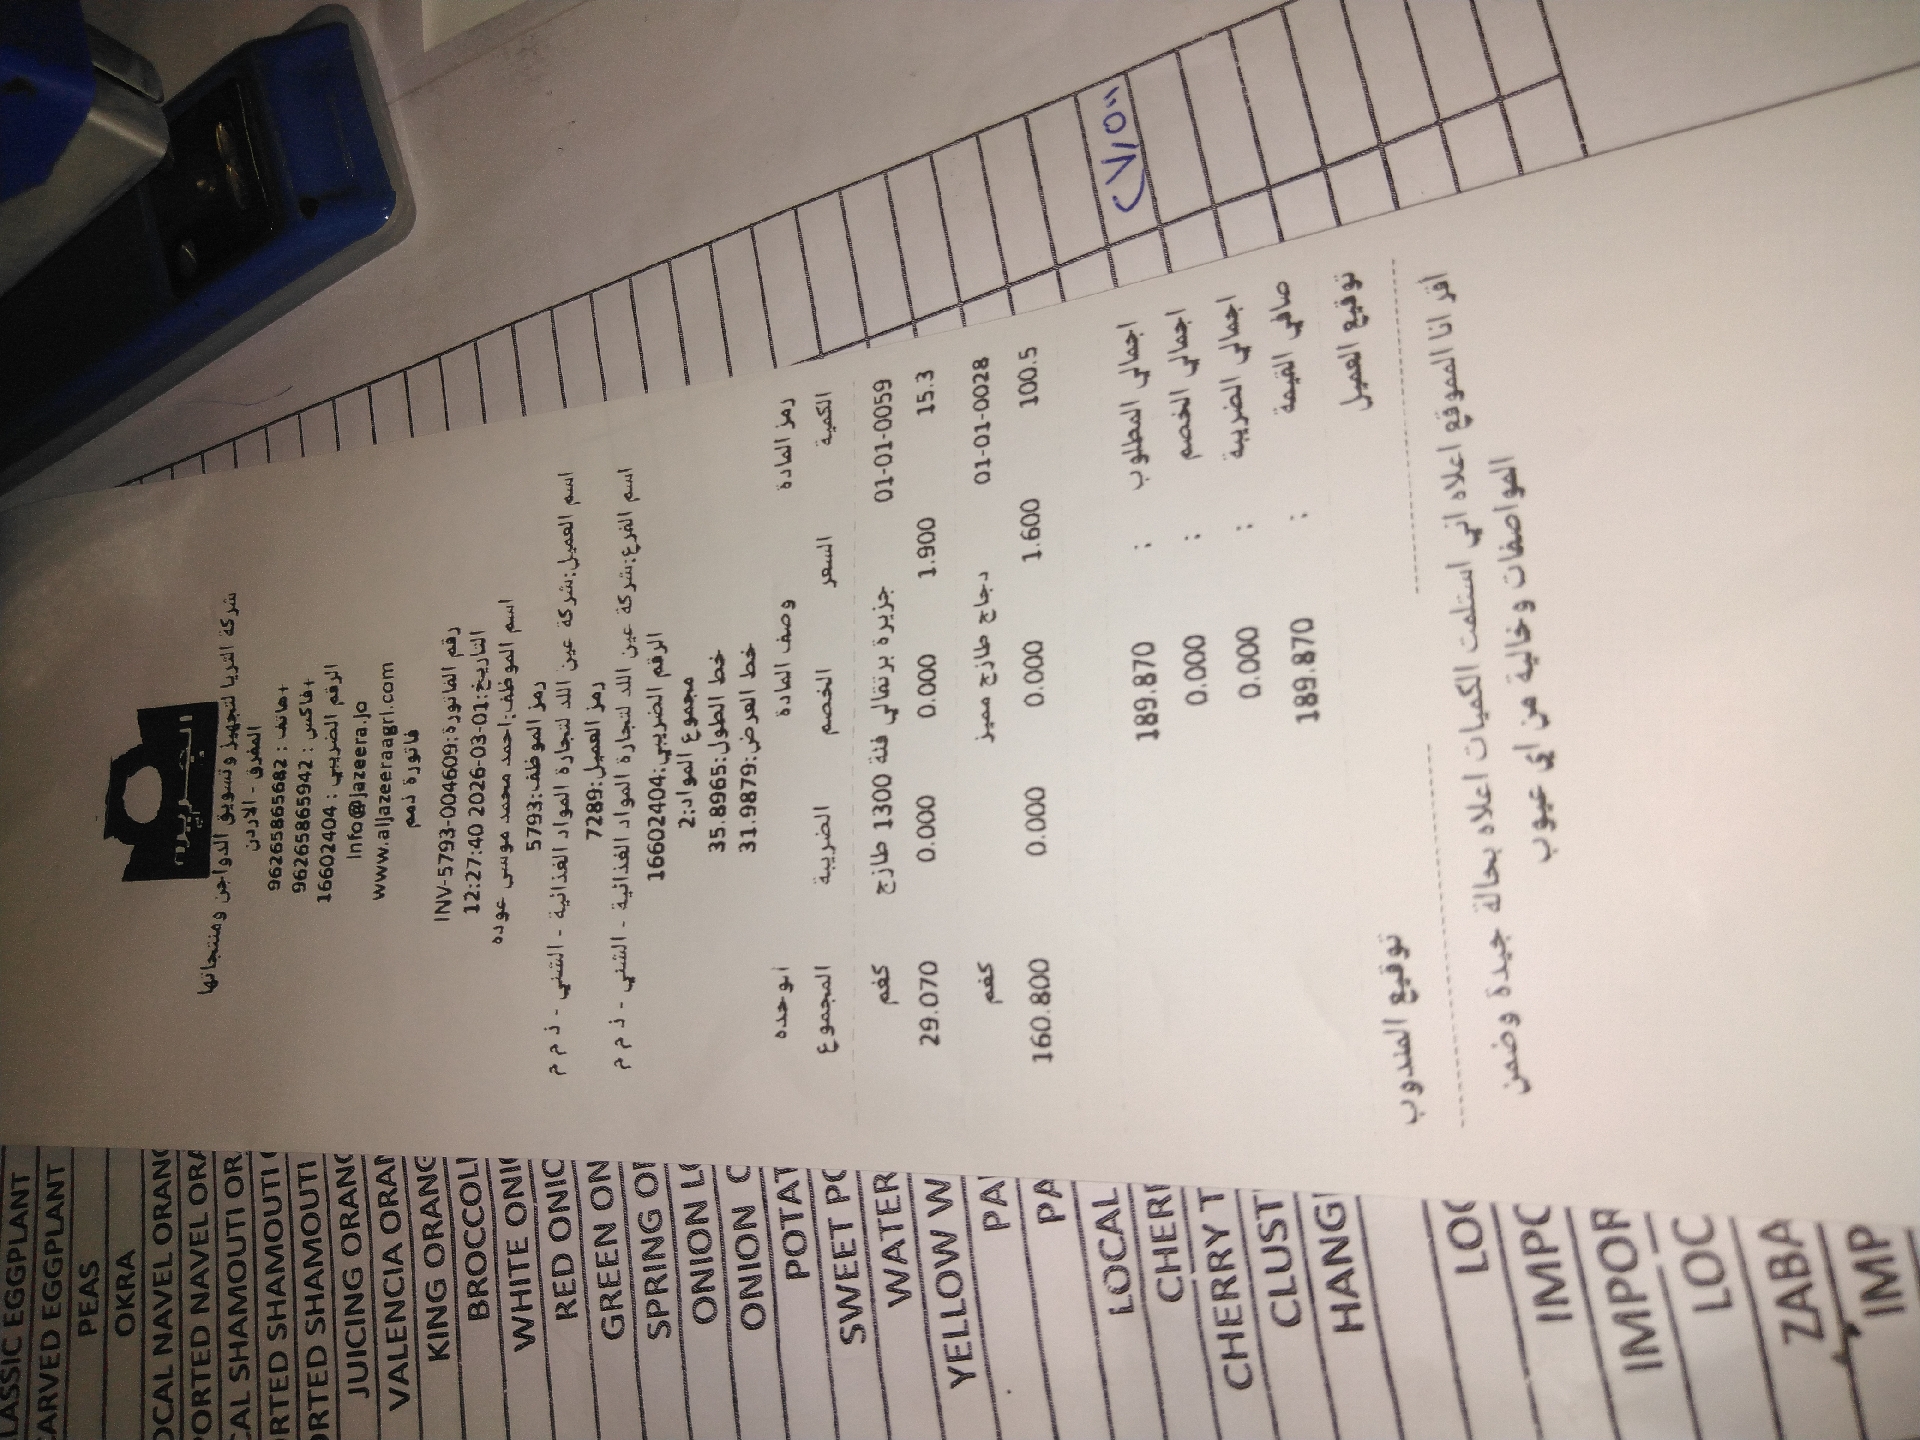 الجزيرة
شركة الثريا لتجهيز وتسويق الدواجن ومنتجاتها
المفرق - الاردن
هاتف : 96265865682+
فاكس : 96265865942+
الرقم الضريبي : 16602404
Info@jazeera.jo
www.aljazeeraagri.com
فاتورة ذمم
رقم الفاتورة:INV-5793-004609
التاريخ:2026-03-01 12:27:40
اسم الموظف:احمد محمد موسى عوده
رمز الموظف:5793
اسم العميل:شركة عين اللد لتجارة المواد الغذائية - الشني - ذ م م
رمز العميل:7289
اسم الفرع:شركة عين اللد لتجارة المواد الغذائية - الشني - ذ م م
الرقم الضريبي:16602404
مجموع المواد:2
خط الطول:35.8965
خط العرض:31.9879
رمز المادة وصف المادة الوحده
الكمية السعر الخصم الضريبة المجموع
01-01-0059 جزيرة برتقالي فئة 1300 طازج كغم
15.3 1.900 0.000 0.000 29.070
01-01-0028 دجاج طازج مميز كغم
100.5 1.600 0.000 0.000 160.800
اجمالي المطلوب : 189.870
اجمالي الخصم : 0.000
اجمالي الضريبة : 0.000
صافي القيمة : 189.870
توقيع العميل توقيع المندوب
اقر انا الموقع اعلاه اني استلمت الكميات اعلاه بحالة جيدة وضمن
المواصفات وخالية من اي عيوب
CARVED EGGPLANT
PEAS
OKRA
JUICING
VALENCIA
WHITE
RED
GREEN
SPRING
ONION
ONION
SWEET
WATER
YELLOW
LOCAL
CHERRY